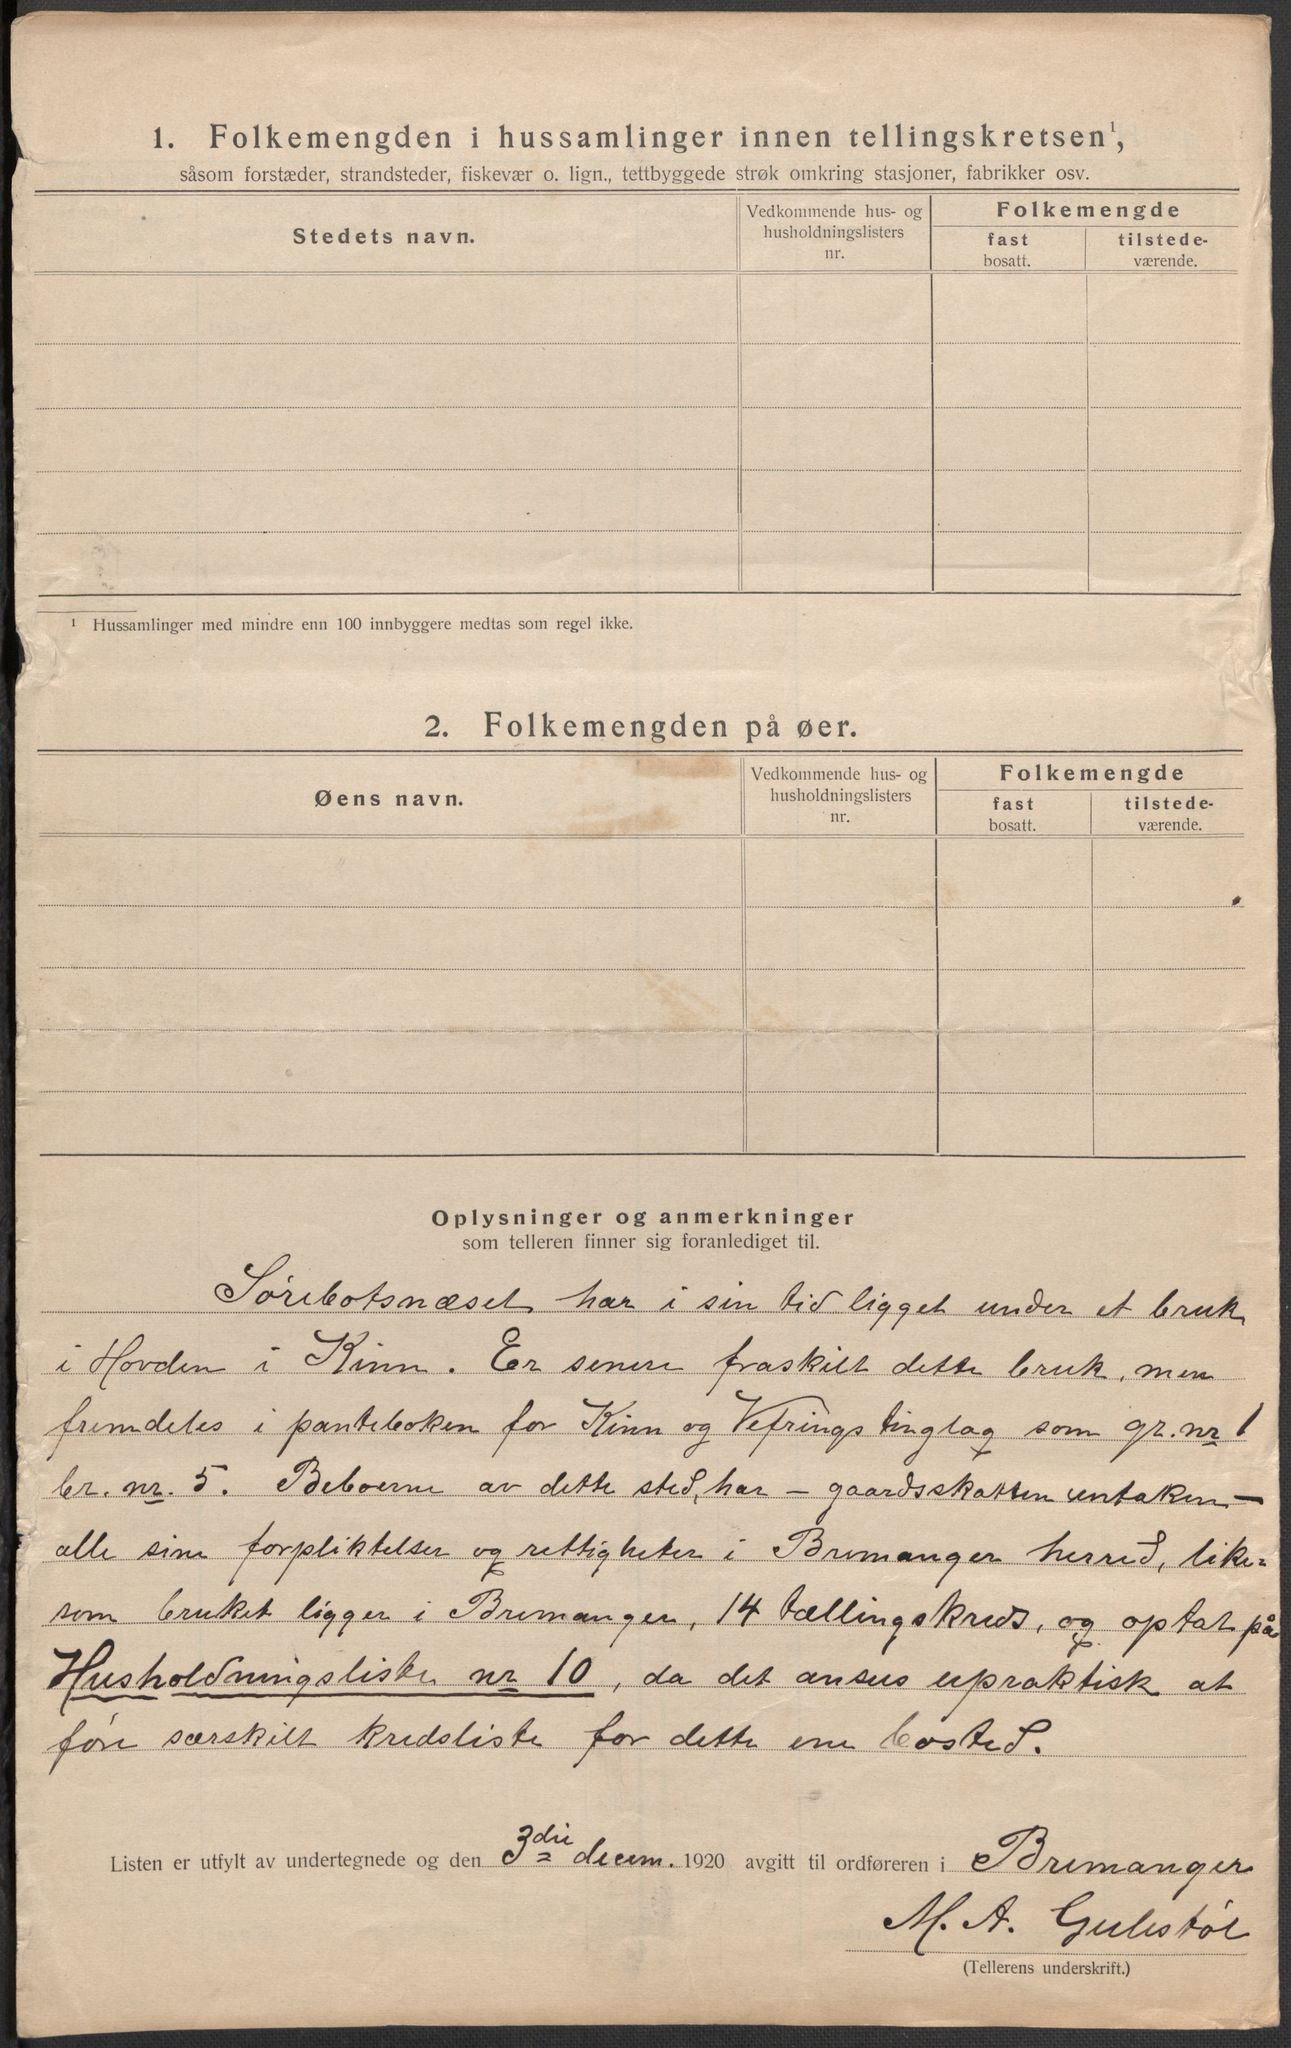 1. Folkemengden i hussamlinger innen tellingskretsen¹,
såsom forstæder, strandsteder, fiskevær o. lign., tettbyggede strøk omkring stasjoner, fabrikker osv.
Stedets navn.
Vedkommende hus- og
husholdningslisters
nr.
Folkemengde
fast
bosatt.
tilstede-
værende.
¹ Hussamlinger med mindre enn 100 innbyggere medtas som regel ikke.
2. Folkemengden på øer.
Øens navn.
Vedkommende hus- og
husholdningslisters
nr.
Folkemengde
fast
bosatt.
tilstede-
værende.
Oplysninger og anmerkninger
som telleren finner sig foranlediget til.
Sørebotsnæset har i sin tid ligget under et bruk
i Hovden i Kinn. Er senere fraskilt dette bruk, men
fremdeles i panteboken for Kinn og Vefrings tinglag som gr. nr 1
br. nr. 5. Beboerne av dette sted, har – gaardsskatten untaken –
alle sine forpliktelser og rettigheter i Bremanger herred, like-
som bruket ligger i Bremanger, 14 tællingskreds, og optat på
Husholdningsliste nr 10, da det ansees upraktisk at
føre særskilt kredsliste for dette ene bosted.
Listen er utfylt av undertegnede og den 3die decem. 1920 avgitt til ordføreren i Bremanger
M. A. Gulestøl
(Tellerens underskrift.)